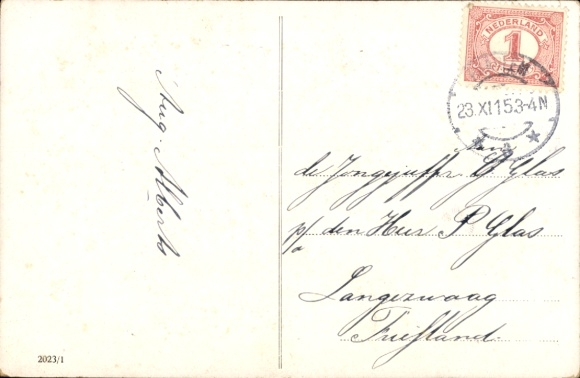 NEDERLAND
1
23.XI 15 3-4N
Aan
de Jongejuffr G Glas
p/a den Heer P Glas
Langezwaag
Friesland.
Aug. Alberts
2023/1